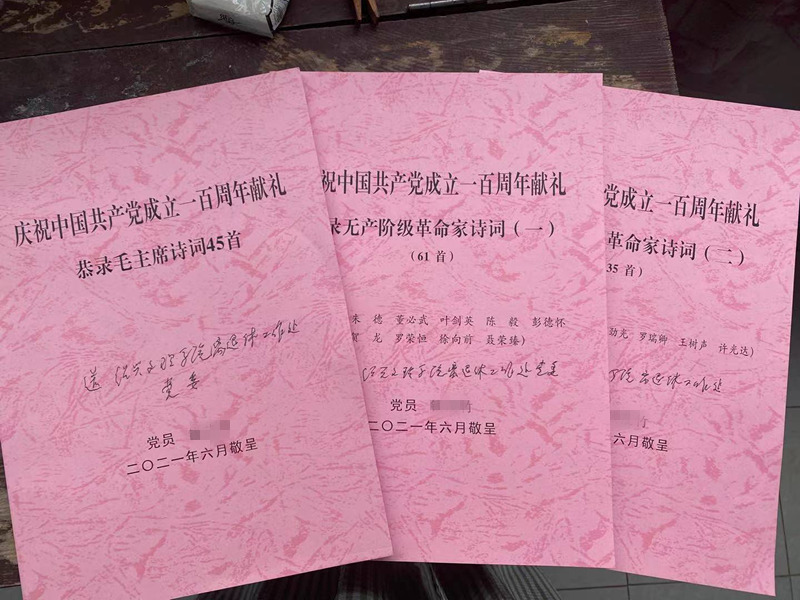 庆祝中国共产党成立一百周年献礼
恭录毛主席诗词45首
送 绍兴文理学院离退休工作处
党委
党员
二〇二一年六月敬呈
祝中国共产党成立一百周年献礼
录无产阶级革命家诗词（一）
（61 首）
朱 德 董必武 叶剑英 陈 毅 彭德怀
贺 龙 罗荣恒 徐向前 聂荣臻）
绍兴文理学院离退休工作处党委
党员
二〇二一年六月敬呈
党成立一百周年献礼
革命家诗词（二）
35 首）
劲光 罗瑞卿 王树声 许光达）
学院离退休工作处
六月敬呈